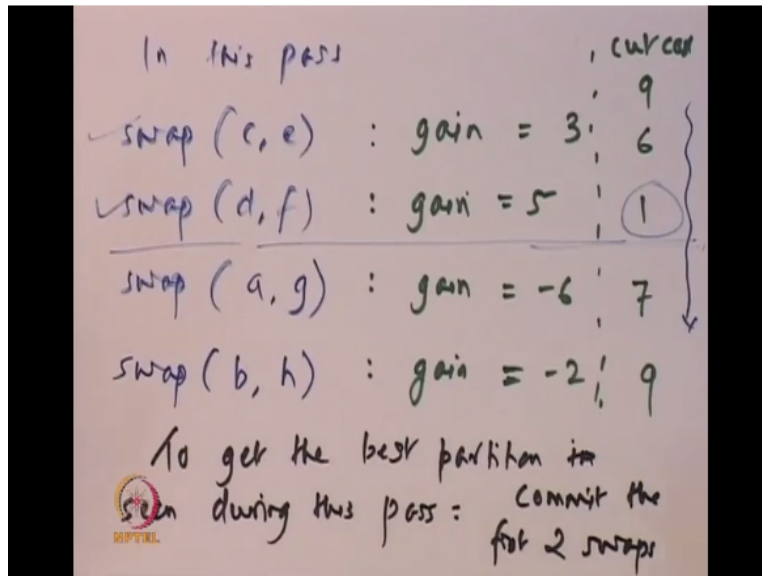 In this pass
cut cost
9
swap (c, e) : gain = 3 6
swap (d, f) : gain = 5 1
swap (a, g) : gain = -6 7
swap (b, h) : gain = -2 9
To get the best partition
seen during this pass : commit the
first 2 swaps
NPTEL